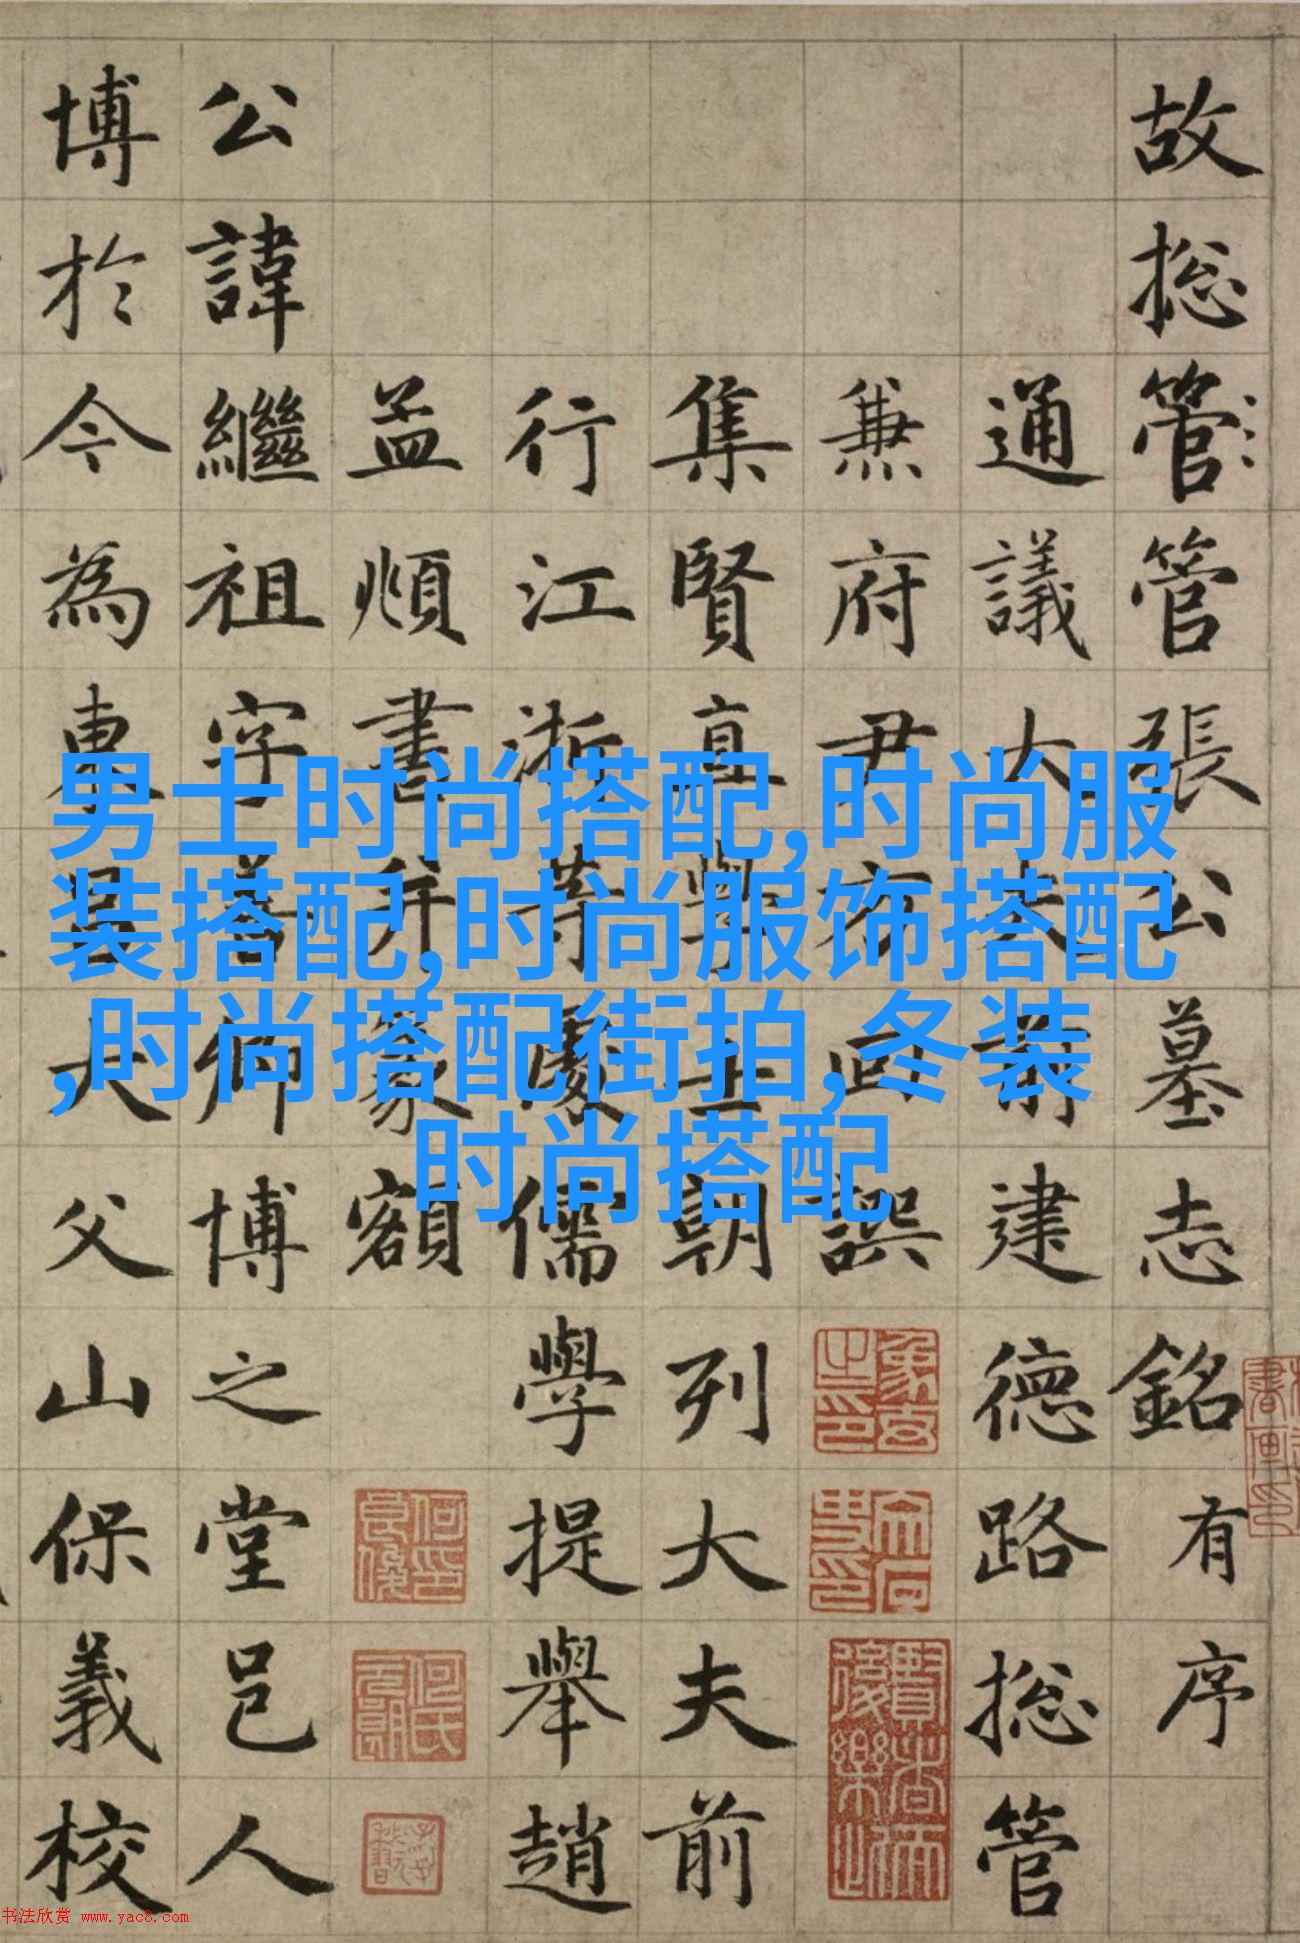 故総管管張公墓志銘有序
通議大夫前建德路総管
兼府尹方回譔
集賢直學士朝列大夫前
行江浙等處儒學提舉趙
孟頫書并篆額
公諱繼祖字善卿博之堂邑人
博於今為東昌大父山保義校
男士时尚搭配,时尚服
装搭配,时尚服饰搭配
,时尚搭配街拍,冬装
时尚搭配
书法欣赏 www.yac8.com